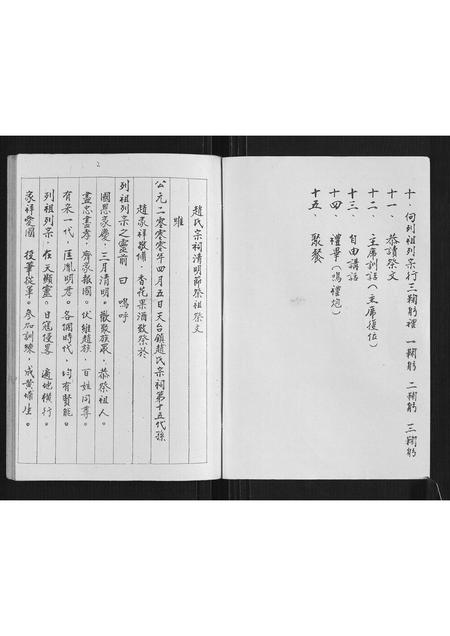 十、向列祖列宗行三鞠躬禮 一鞠躬 二鞠躬 三鞠躬
十一、恭讀祭文
十二、主席訓話（主席復位）
十三、自由講話
十四、禮畢（鳴禮炮）
十五、聚餐
2
趙氏宗祠清明節祭祖祭文
維
公元二零零零年四月五日天台鎮趙氏宗祠第十五代孫
趙家祥敬備 香花果酒致祭於
列祖列宗之靈前 曰 嗚呼
國恩家慶，三月清明。歡聚族眾，恭祭祖人。
盡忠盡孝，齊家報國。伏維趙族，百姓同尊。
有宋一代，匡胤明君。各個時代，均有賢能。
列祖列宗，在天顯靈。日寇侵畧 遍地橫行。
家祥愛國 投筆從軍。參加訓練，成黃埔生。